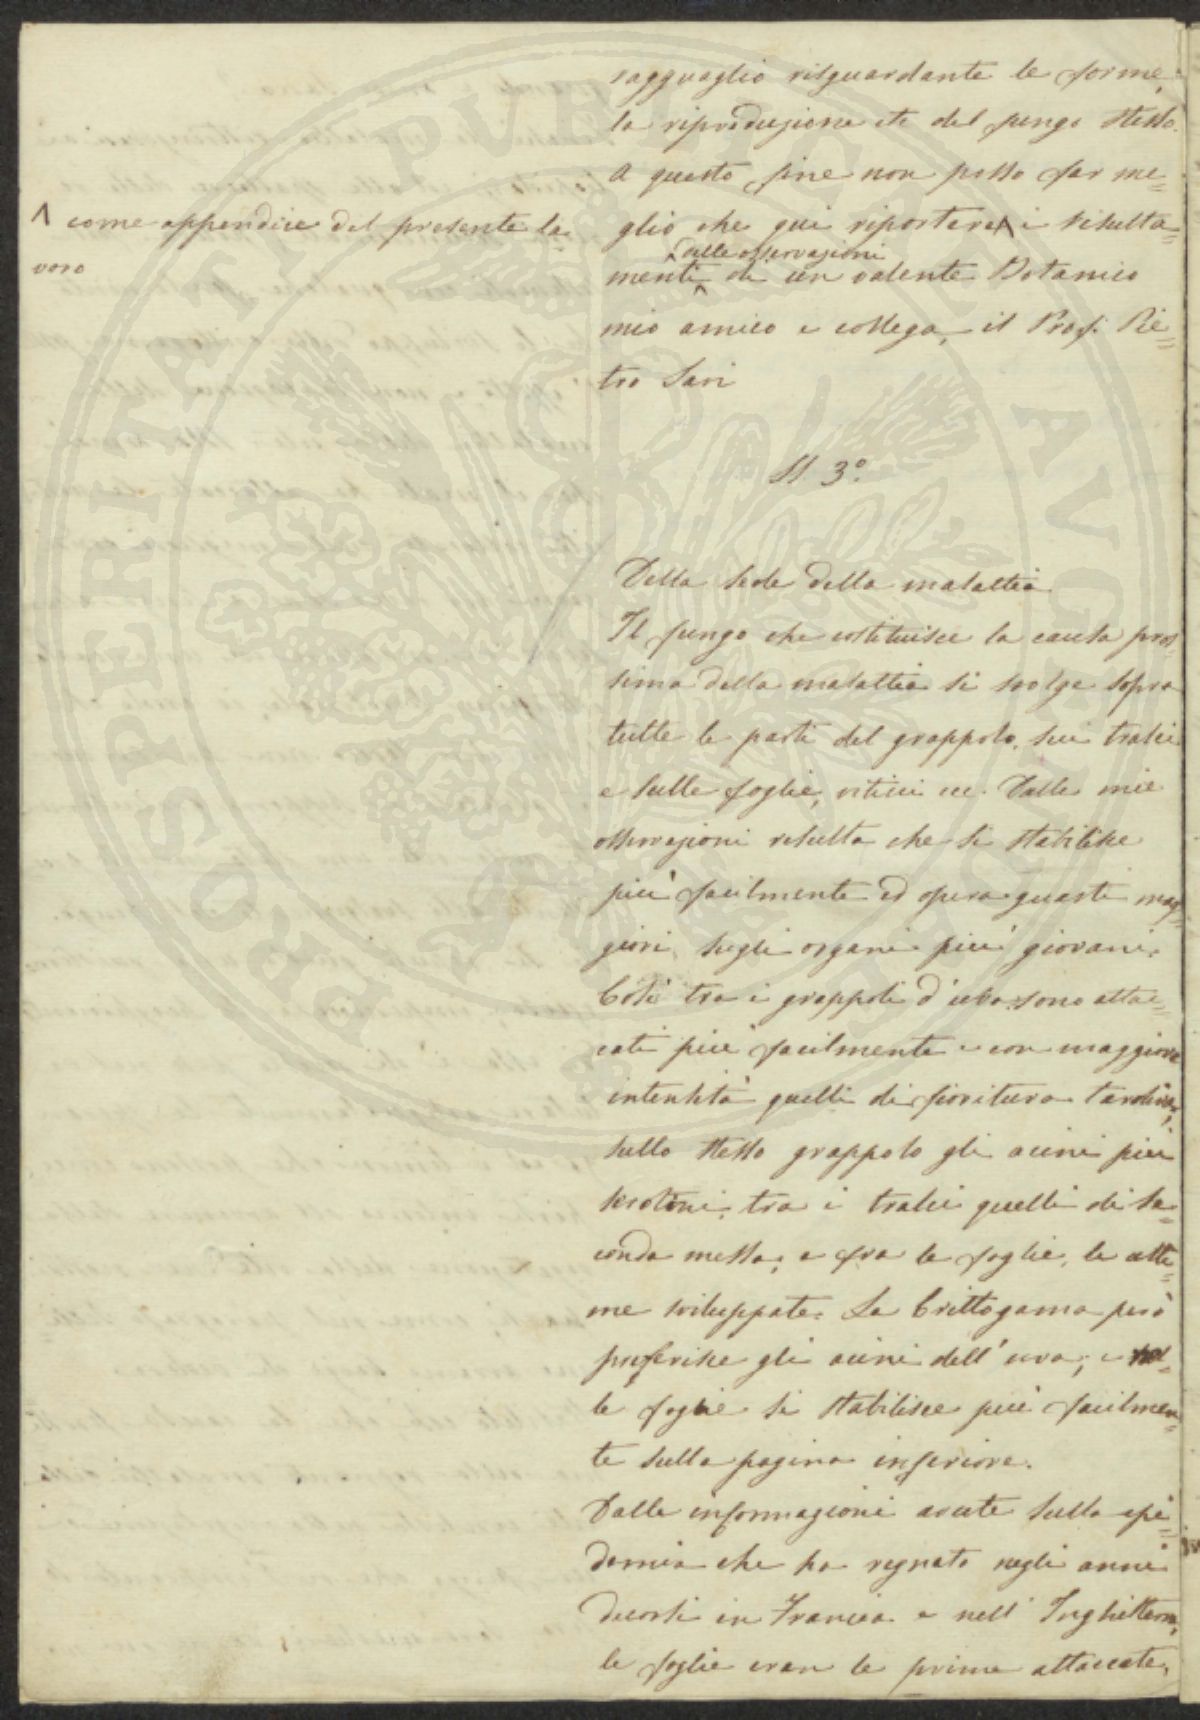 ragguaglio risguardante le forme,
la riproduzione etc del fungo stesso.
A questo fine non posso far me=
glio che qui riportare i risulta=
menti di un valente Botanico
dalle osservazioni
mio amico e collega, il Prof. Pie=
tro Savi
^ come appendice del presente la=
voro
§ 3.°
Della sede della malattia
Il fungo che costituisce la causa pros=
sima della malattia si svolge sopra
tutte le parti del grappolo, sui tralci
e sulle foglie, viticci ecc. Dalle mie
osservazioni risulta che si stabilisce
più facilmente ed opera guasti mag=
giori, sugli organi più giovani.
Così tra i grappoli d'uva sono attac=
cati più facilmente e con maggiore
intensità quelli di fioritura tardiva,
sullo stesso grappolo gli acini più
serotini, tra i tralci quelli di se=
conda messa; e fra le foglie, le ulti=
me sviluppate. La Crittogama però
preferisce gli acini dell'uva; e nel=
le foglie si stabilisce più facilmen=
te sulla pagina inferiore.
Dalle informazioni avute sulla epi=
demia che ha regnato negli anni
decorsi in Francia e nell'Inghilterra,
le foglie eran le prime attaccate,
PROSPERITATI PUBLICAE AUGENDAE